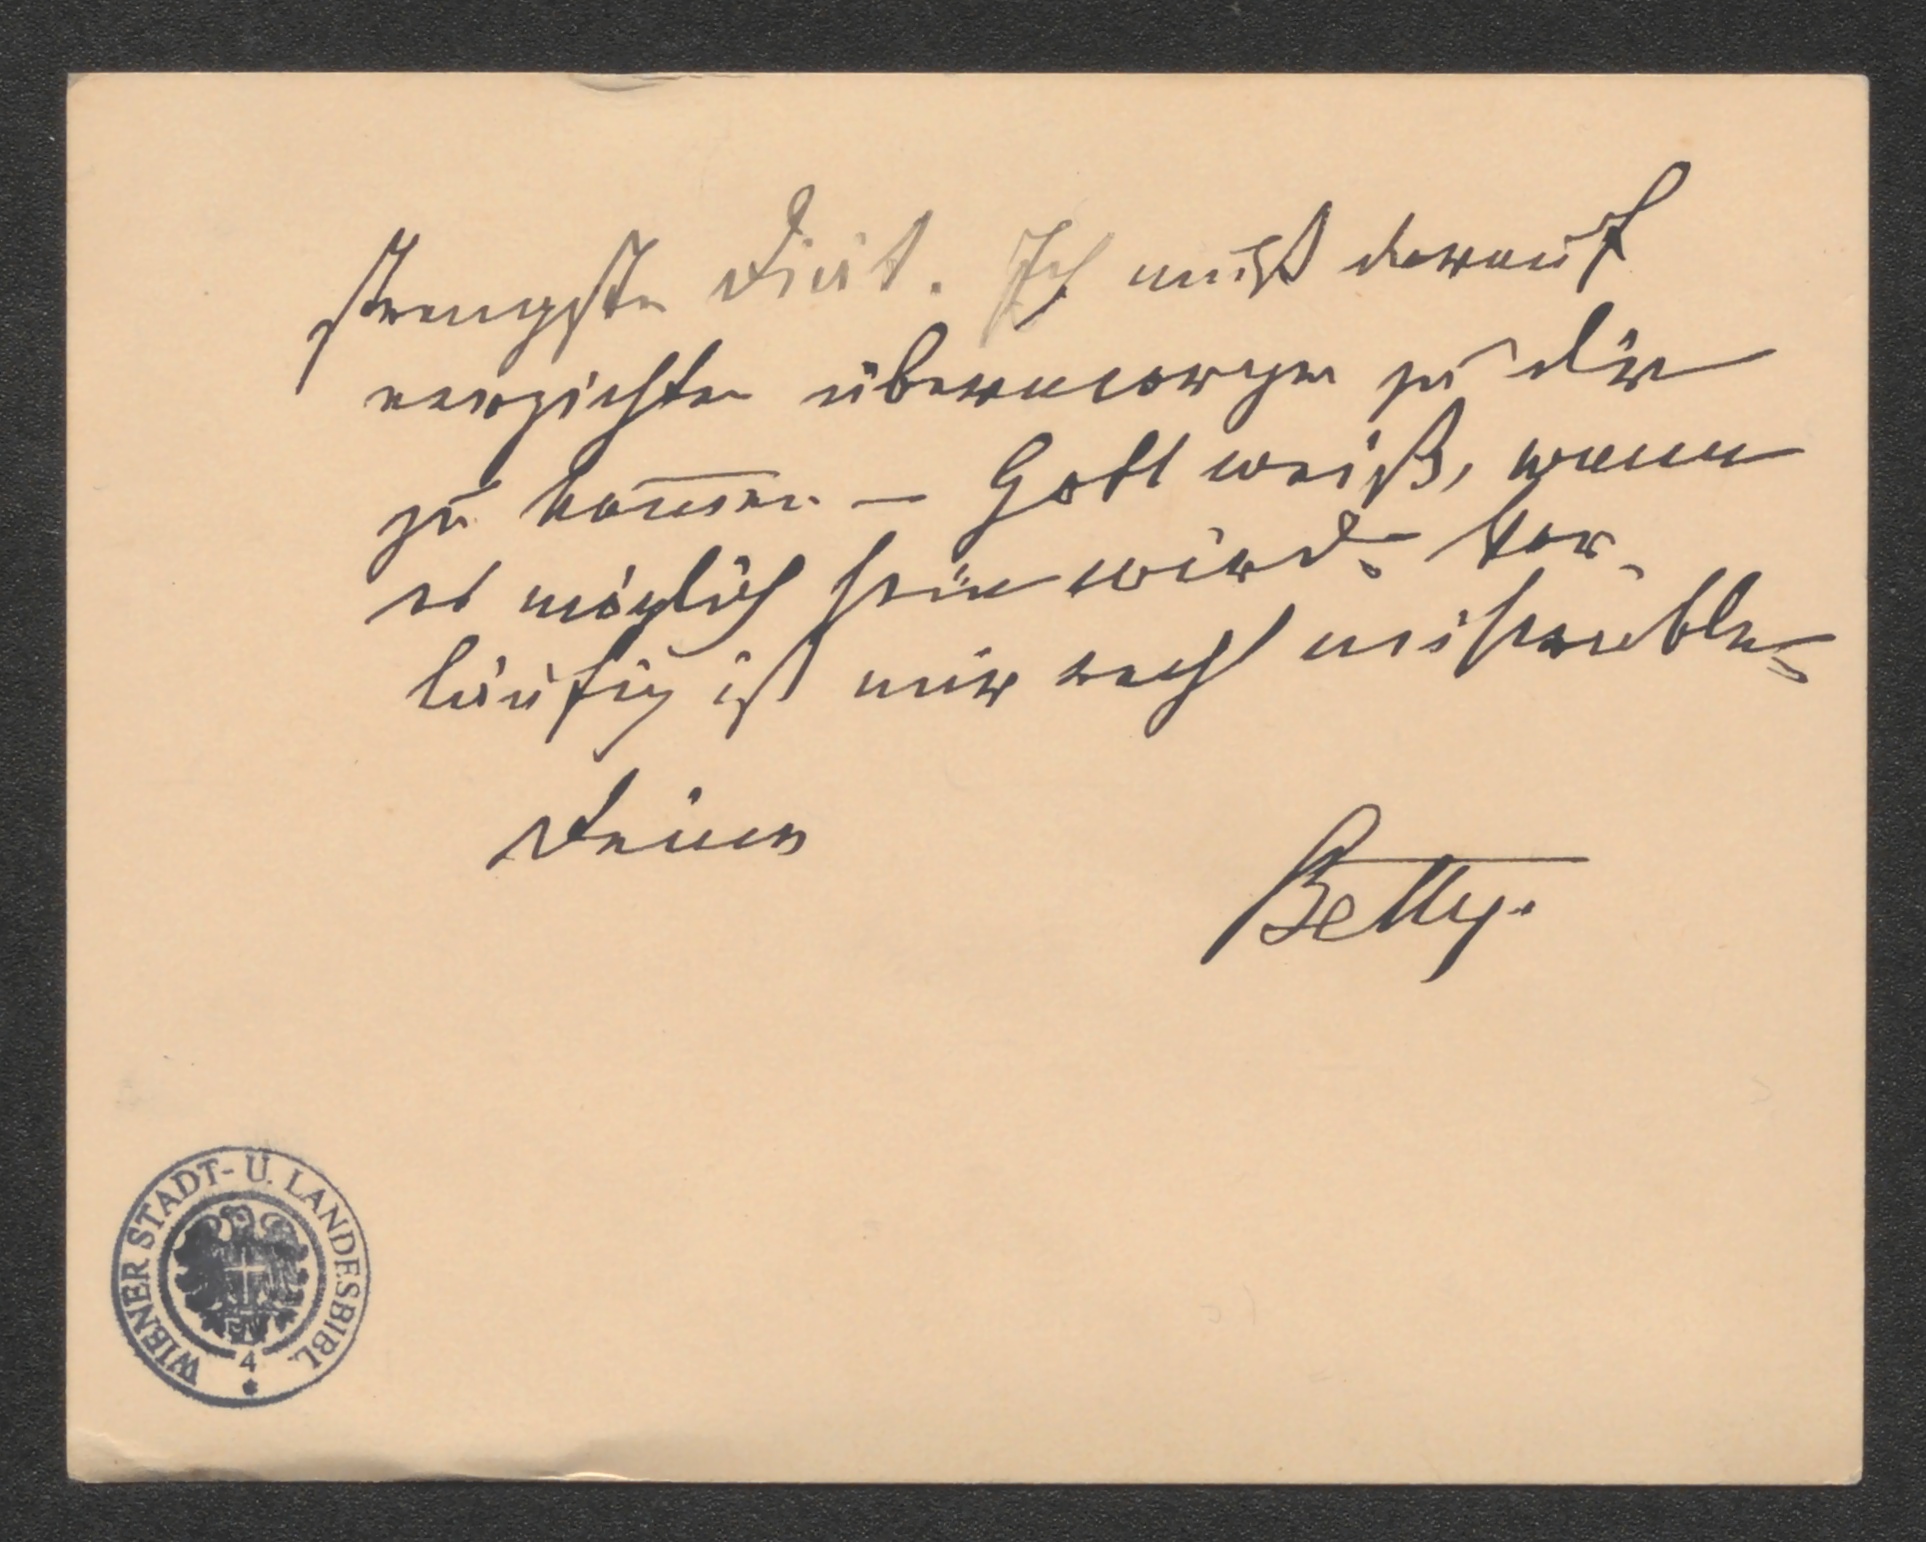 strengste Diät. Ich muß darauf
verzichten übermorgen zu dir
zu kommen – Gott weiß, wann
es möglich sein wird. Vor-
läufig ist mir recht miserabel.
Deine
Betty.
WIENER STADT- U. LANDESBIBL.
4